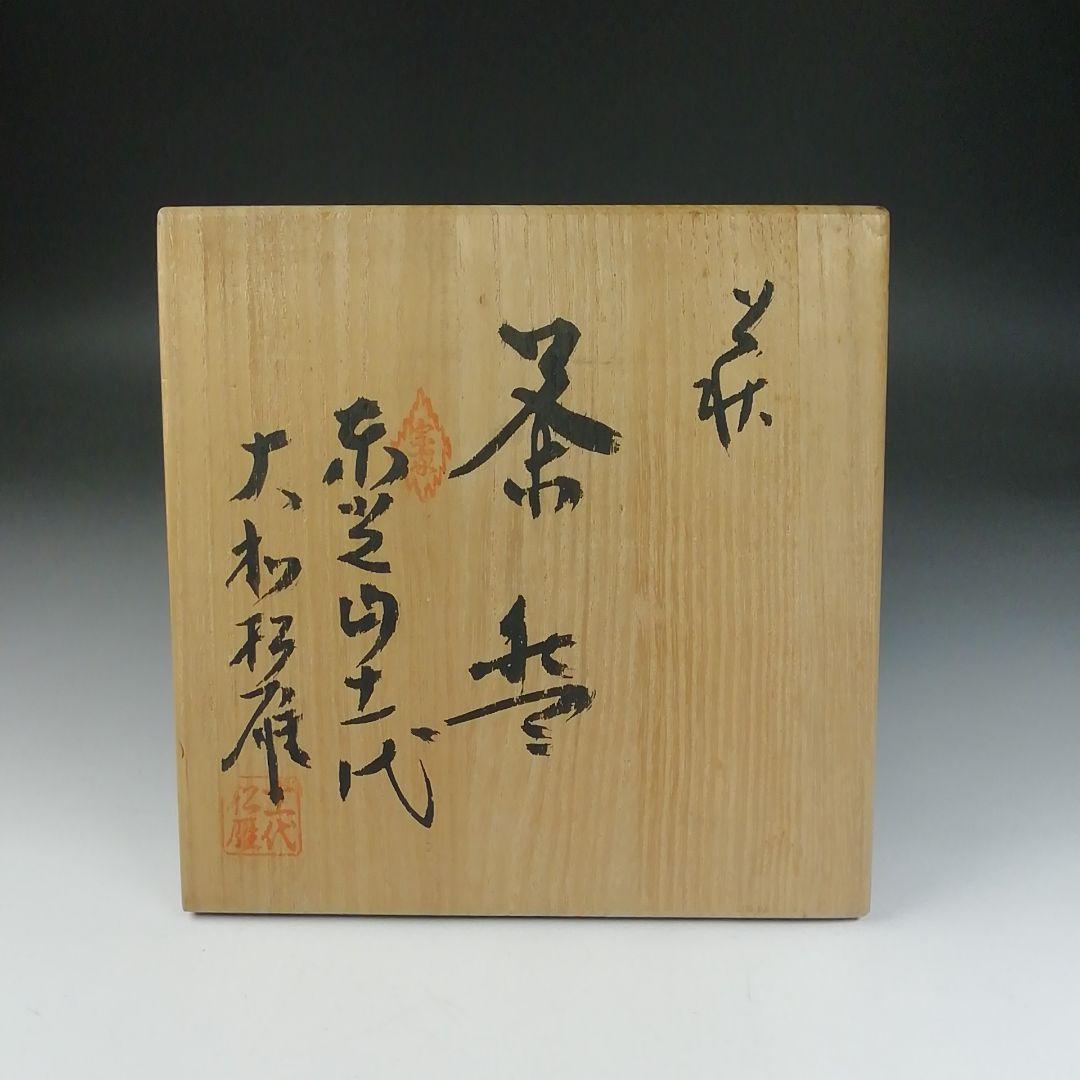 萩
茶盌
東光山十一代
大和松雁
十一代
松雁